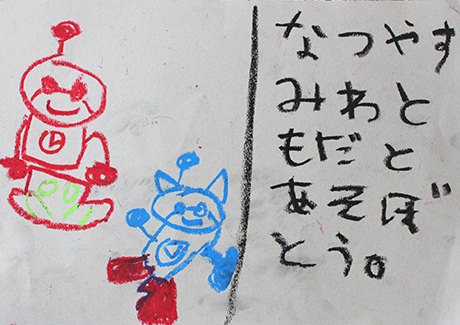 なつやす
みわと
もだと
あそぼ
とう。